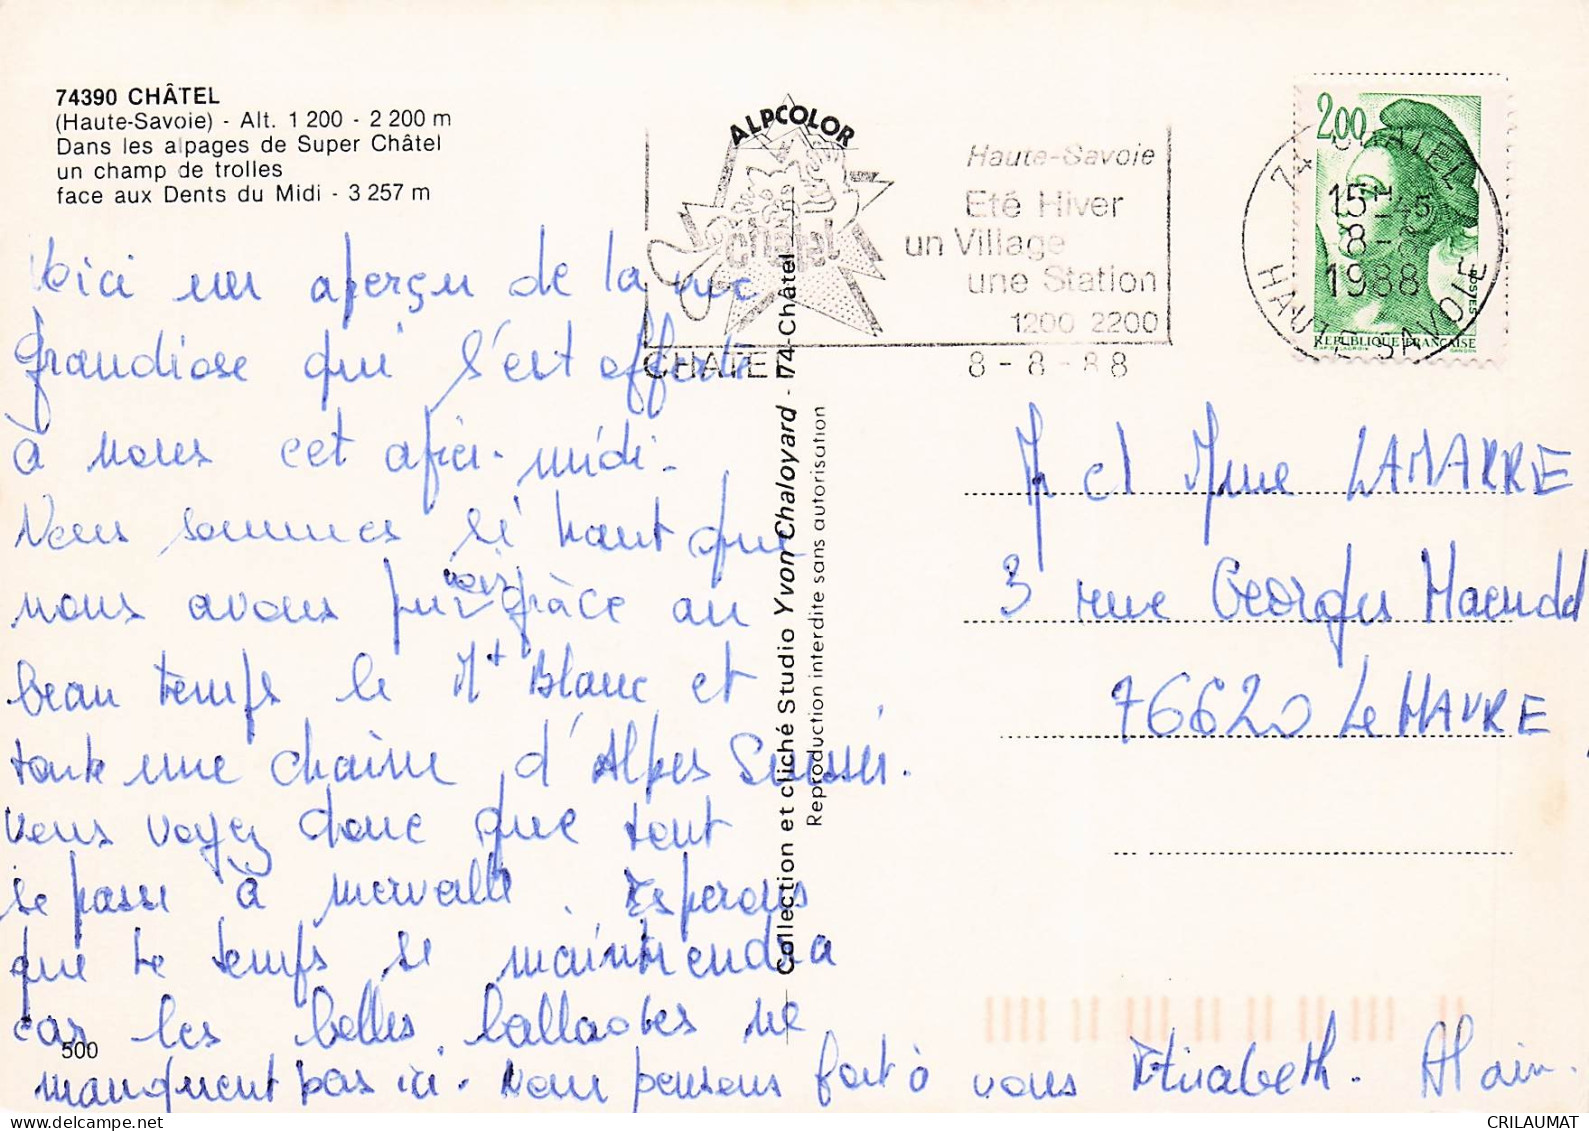 74390 CHÂTEL
(Haute-Savoie) - Alt. 1 200 - 2 200 m
Dans les alpages de Super Châtel
un champ de trolles
face aux Dents du Midi - 3 257 m
ALPCOLOR
Châtel
Haute-Savoie
Eté Hiver
un Village
une Station
1200 2200
CHATEL
8 - 8 - 88
2,00
POSTES
REPUBLIQUE FRANÇAISE
74 CHATEL
15H45
8-8
1988
HAUTE SAVOIE
Voici un aperçu de la vue
grandiose qui s'est offerte
à nous cet après-midi.
Nous sommes si haut que
nous avons pu voir grâce au
beau temps le Mt Blanc et
toute une chaîne d'Alpes Suisses.
Vous voyez donc que tout
se passe à merveille. Espérons
que le temps se maintiendra
car les belles ballades ne
manquent pas ici. Nous pensons fort à vous Elisabeth. Alain.
500
Collection et cliché Studio Yvon Chaloyard - 74-Châtel
Reproduction interdite sans autorisation
M et Mme LAMARRE
3 rue Georges
76620 Le HAVRE
CRILAUMAT